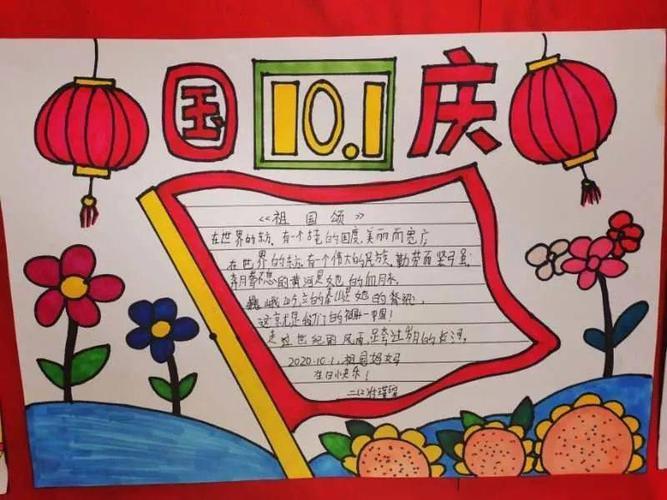 国 10.1 庆
《祖国颂》
在世界的东方,有一个古老的国度,美丽而宽广
在世界的东方,有一个伟大的民族,勤劳而坚强
奔月不息的黄河是她的血脉
巍峨屹立的泰山是她的脊梁。
这就是我们的祖国—中国!
走过世纪的风雨,跨过岁月的长河。
2020.10.1.祖国妈妈
生日快乐!